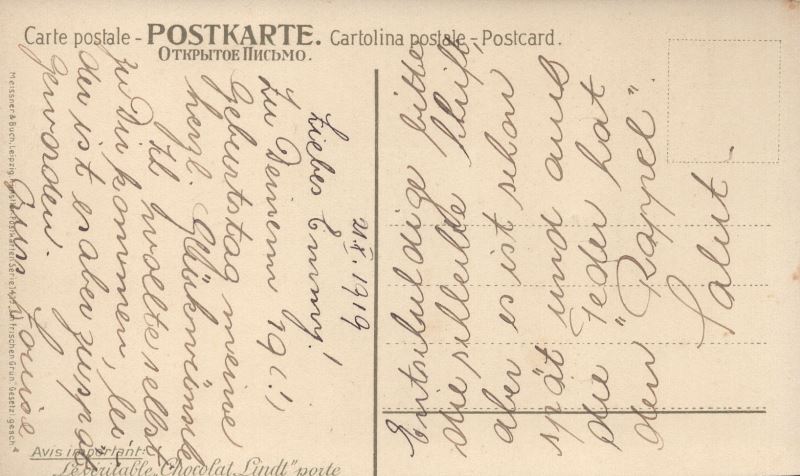 Carte postale - POSTKARTE. Cartolina postale - Postcard.
ОТКРЫТОЕ ПИСЬМО.
21. X. 1919
Liebes Emmy!
Zu Deinem 19(!)
Geburtstag meine
herzl. Glückwünsche
Ich wollte selbst
zu Dir kommen, lei
der ist es aber zu spät
geworden.
Gruss Louise
Entschuldige bitte
die schlechte Schrift,
aber es ist schon
spät und auch
die Feder hat
den "Rappel".
Salut
Meissner & Buch, Leipzig. Künstler-Postkarten Serie "In frischen Grün" Gesetzl. gesch
Avis important:
Le véritable "Chocolat Lindt" porte